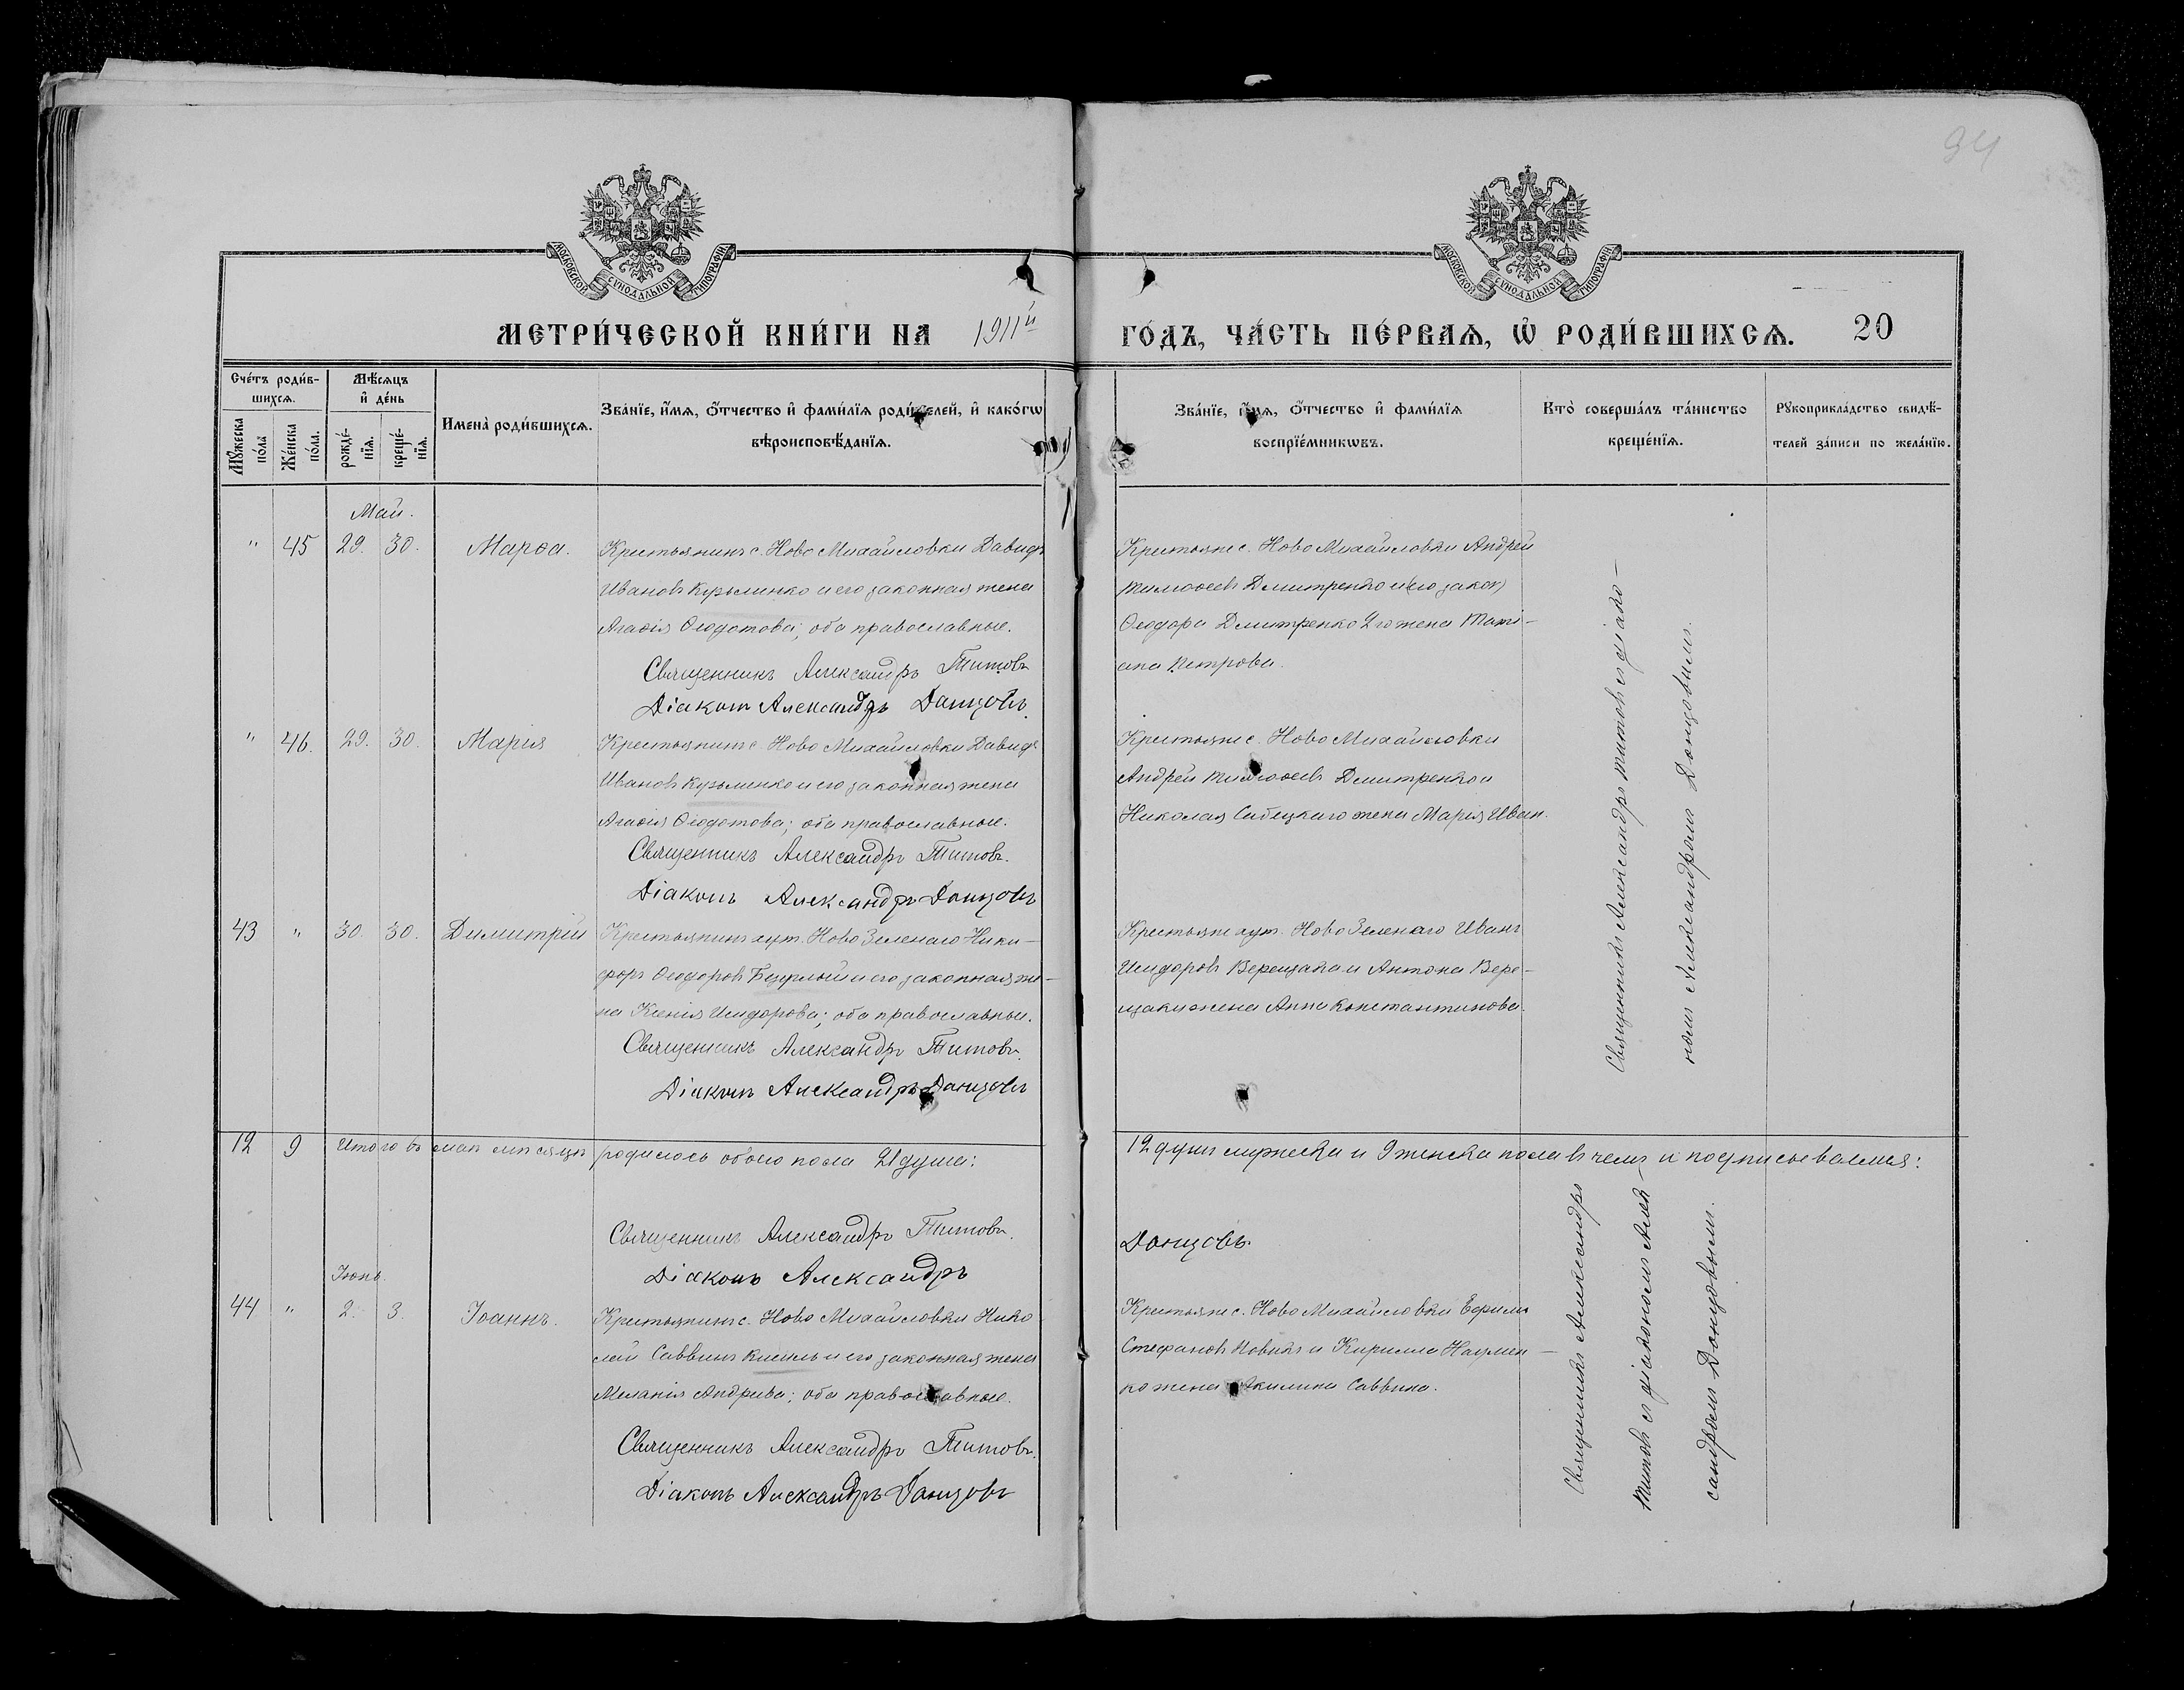 94
МОСКОВСКОЙ СѴНОДАЛЬНОЙ ТИПОГРАФІИ
МОСКОВСКОЙ СѴНОДАЛЬНОЙ ТИПОГРАФІИ
МЕТРИ́ЧЕСКОЙ КНИ́ГИ НА 1911й ГО́ДЪ, ЧА́СТЬ ПЕ́РВАѦ, Ѡ҆ РОДИ́ВШИХСѦ. 20
Сче́тъ роди́в-
шихсѧ.
Мꙋ́жеска по́ла
Же́нска по́ла.
Мѣ́сѧцъ
и҆ де́нь
рожде́-
нїѧ.
креще́-
нїѧ.
Имена̀ роди́вшихсѧ.
Зва́нїе, и҆́мѧ, ѻ҆́тчество и҆ фами́лїѧ роди́телей, и҆ како́гѡ
вѣроисповѣ́данїѧ.
Зва́нїе, и҆́мѧ, ѻ҆́тчество и҆ фами́лїѧ
воспрїе́мникѡвъ.
Кто̀ соверша́лъ та́инство
креще́нїѧ.
Рꙋкоприкла́дство свидѣ́-
телей за́писи по жела́нїю.
Май.
" 45 29. 30. Марѳа.
Крестьянинъ с. Ново Михайловки Давидъ
Ивановъ Кузьменко и его законная жена
Агаѳія Ѳеодотова; оба православные.
Священникъ Александръ Титовъ
Діаконъ Александръ Донцовъ.
Крестьяне с. Ново Михайловки Андрей
Тимоѳеевъ Дмитренко и (его закон)
Ѳеодора Дмитренко 2го жена Тати-
ана Петрова.
" 46. 29. 30. Марія
Крестьянинъ с. Ново Михайловки Давидъ
Ивановъ Кузьменко и его законная жена
Агаѳія Ѳеодотова; оба православные.
Священникъ Александръ Титовъ.
Діаконъ Александръ Донцовъ
Крестьяне с. Ново Михайловки
Андрей Тимоѳеевъ Дмитренко и
Николая жена Марія Иван.
43 " 30. 30. Димитрій
Крестьянинъ хут. Ново Зеленаго Ники-
форъ Ѳеодоровъ и его законная же-
на Ксенія Исидорова; оба православные.
Священникъ Александръ Титовъ.
Діаконъ Александръ Донцовъ
Крестьяне хут. Ново Зеленаго Иванъ
Исидоровъ Верещака и Антона Вере-
щаки жена Анна Константинова.
Священникъ Александръ Титовъ съ діако-
номъ Александромъ Донцовымъ.
12 9 Итого въ маѣ мѣсяцѣ родилось обоего пола 21 душа: 12 душъ мужеска и 9 женска пола въ чемъ и подписываемся:
Священникъ Александръ Титовъ.
Діаконъ Александръ Донцовъ.
Іюнь.
44 " 2. 3. Іоаннъ.
Крестьянинъ с. Ново Михайловки Нико
лай Саввинъ Кисиль и его законная жена
Меланія Андреева; оба православные.
Священникъ Александръ Титовъ.
Діаконъ Александръ Донцовъ
Крестьяне с. Ново Михайловки Ефимъ
Стефановъ Новикъ и Кирилла Наумен-
ко жена Акилина Саввина.
Священникъ Александръ
Титовъ съ діакономъ Алек-
сандромъ Донцовымъ.